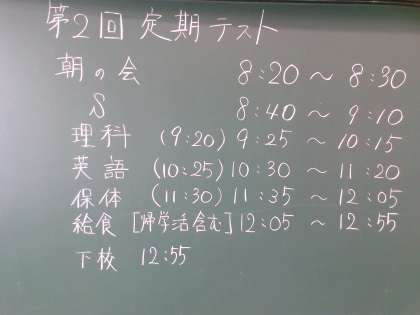 第2回 定期テスト
朝の会 8:20 ～ 8:30
S 8:40 ～ 9:10
理科 (9:20) 9:25 ～ 10:15
英語 (10:25) 10:30 ～ 11:20
保体 (11:30) 11:35 ～ 12:05
給食 [帰学活含む] 12:05 ～ 12:55
下校 12:55